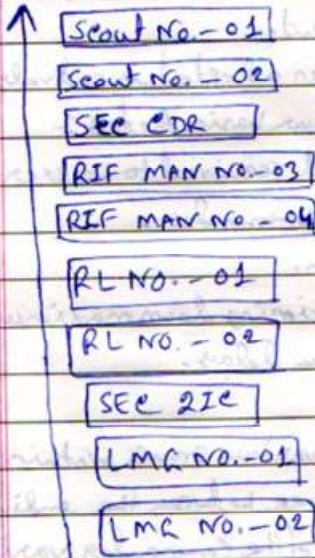 Scout No. - 01
Scout No. - 02
SEC CDR
RIF MAN NO. - 03
RIF MAN NO. - 04
RL NO. - 01
RL NO. - 02
SEC 2IC
LMG NO. - 01
LMG NO. - 02